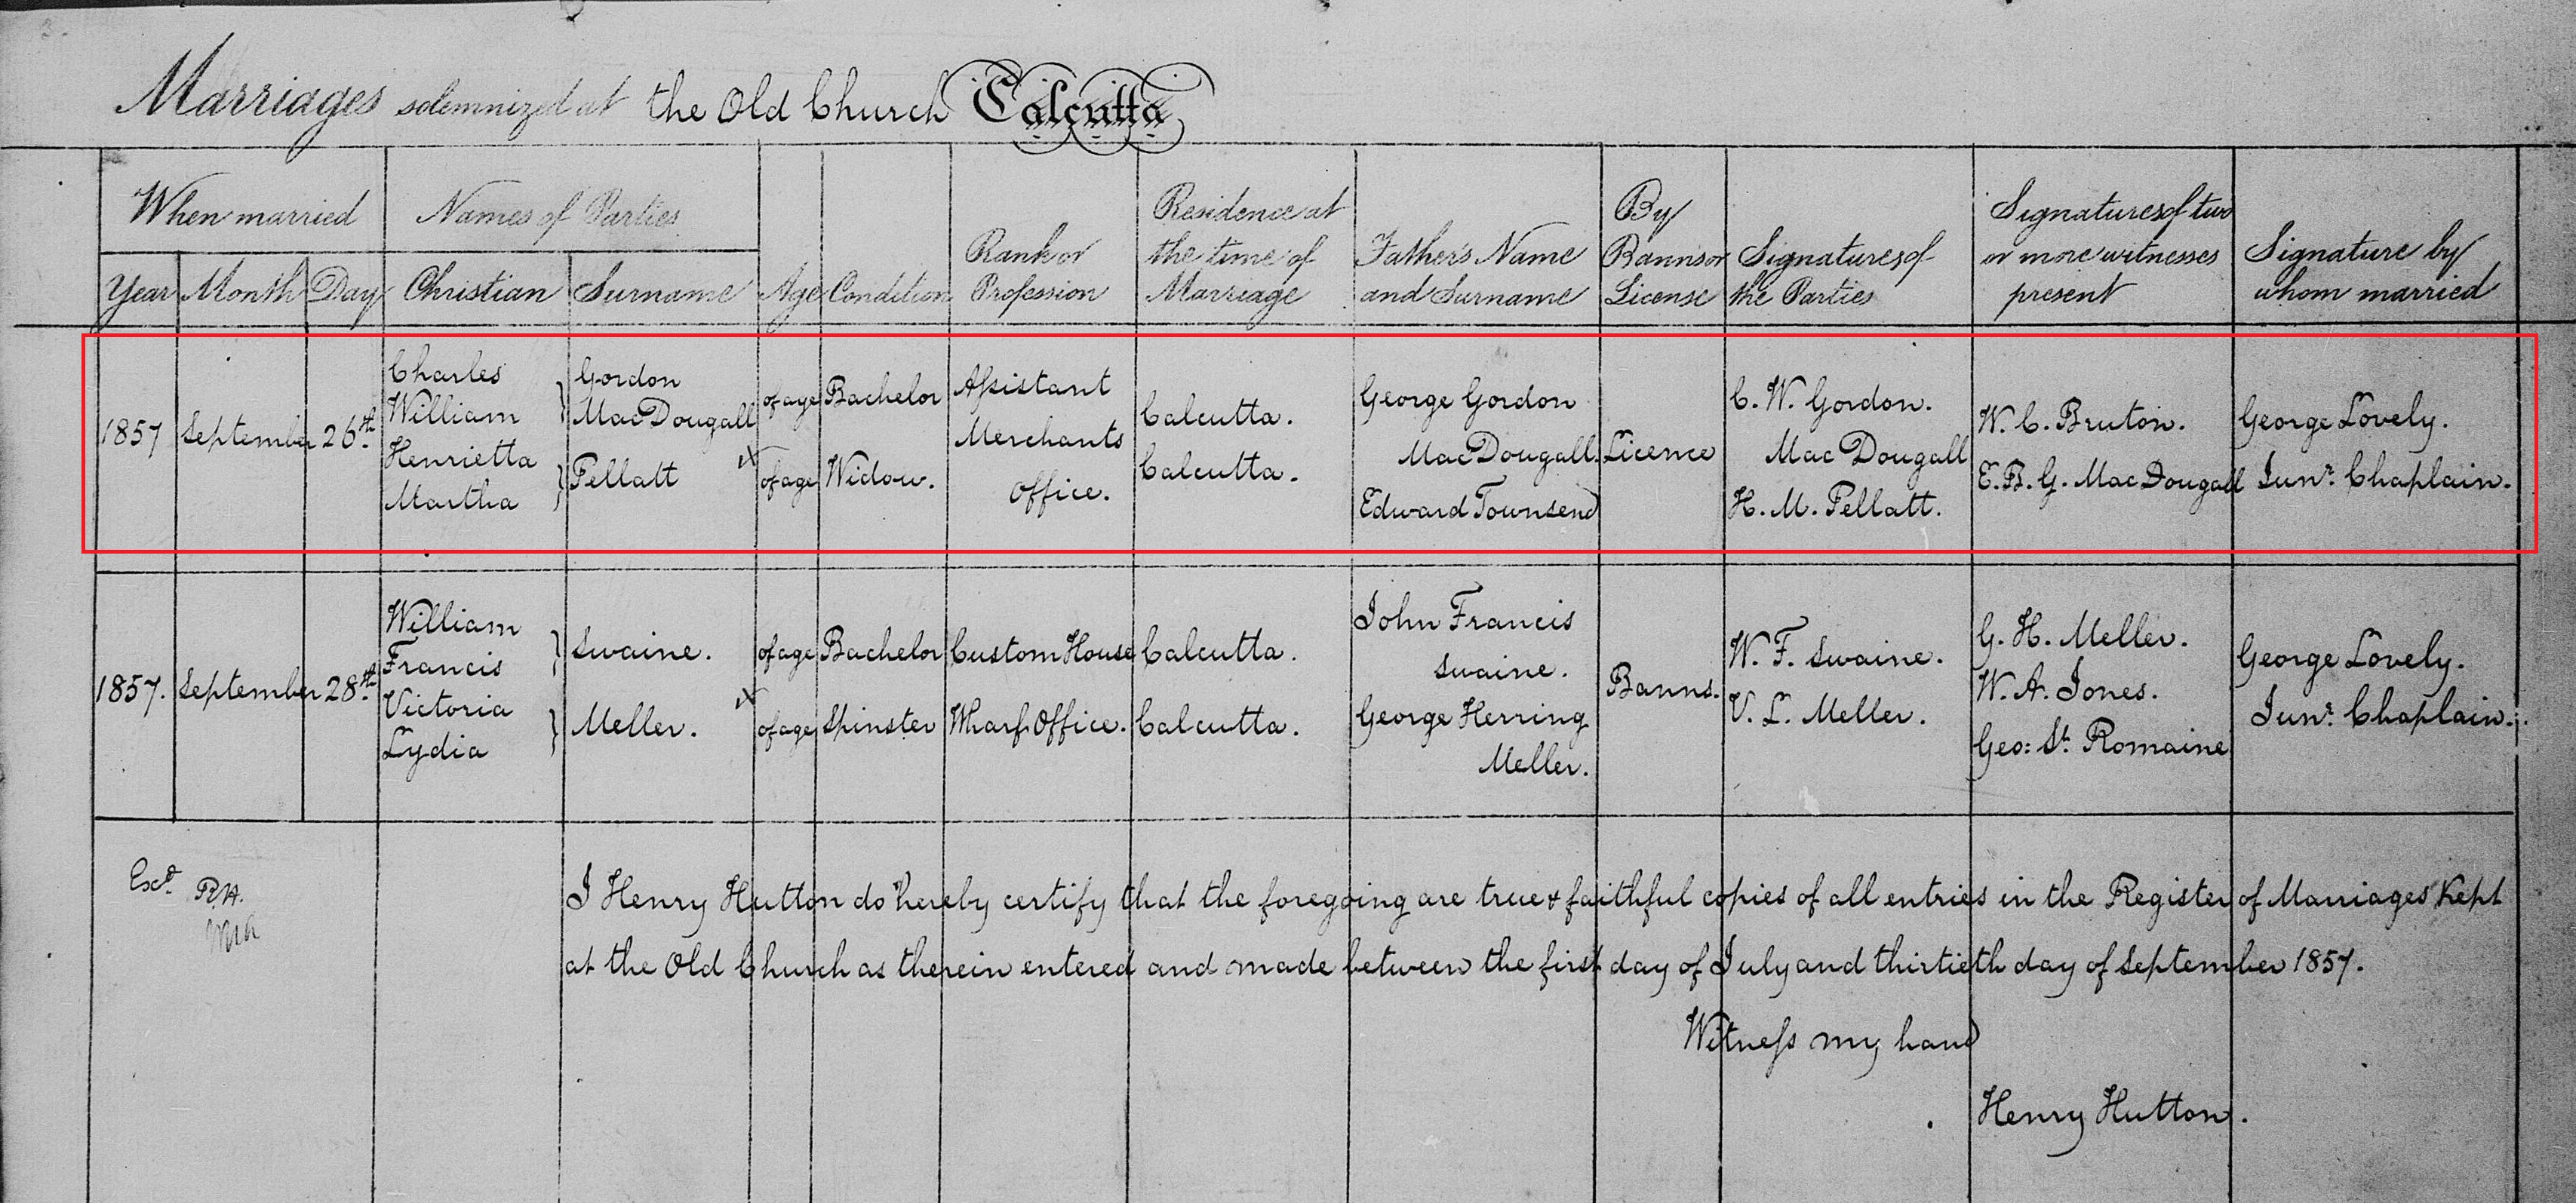 Marriages solemnized at the Old Church Calcutta
When married
Names of Parties
Year
Month
Day
Christian
Surname
Age
Condition
Rank or
Profession
Residence at
the time of
Marriage
Father's Name
and Surname
By
Banns or
License
Signatures of
the Parties
Signatures of two
or more witnesses
present
Signature by
whom married
1857
September
26th
Charles
William
Henrietta
Martha
Gordon
MacDougall
Pellatt
of age
of age
Bachelor
Widow.
Assistant
Merchants
Office.
Calcutta.
Calcutta.
George Gordon
MacDougall.
Edward Townsend
Licence
C. W. Gordon.
Mac Dougall
H. M. Pellatt.
W. C. Bruton.
E. B. G. MacDougall
George Lovely.
Junr. Chaplain.
1857.
September
28th
William
Francis
Victoria
Lydia
Swaine.
Meller.
of age
of age
Bachelor
Spinster
Custom House
Wharf Office.
Calcutta.
Calcutta.
John Francis
Swaine.
George Herring
Meller.
Banns.
W. F. Swaine.
V. L. Meller.
G. H. Meller.
W. A. Jones.
Geo: St. Romaine
George Lovely.
Junr. Chaplain.
Exd.
I Henry Hutton do hereby certify that the foregoing are true & faithful copies of all entries in the Register of Marriages Kept
at the Old Church as therein entered and made between the first day of July and thirtieth day of September 1857.
Witness my hand
Henry Hutton.